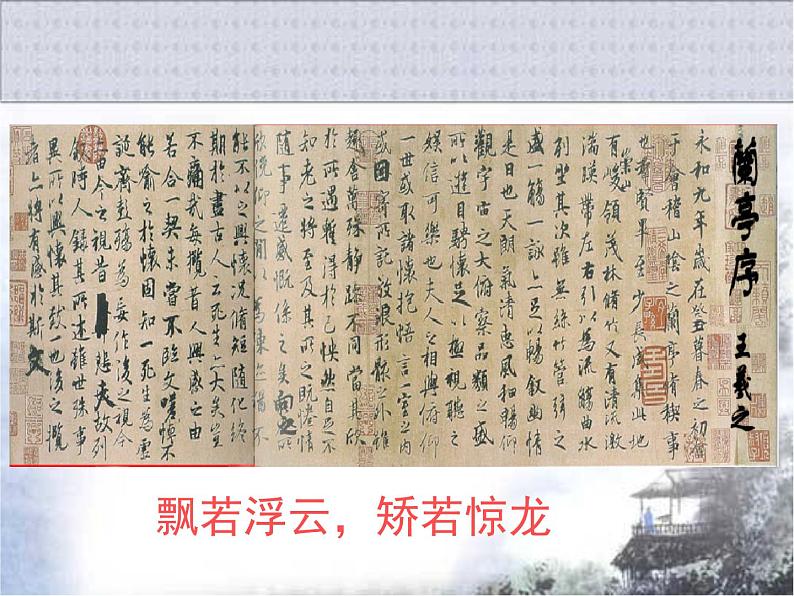 蘭亭序 王羲之
永和九年歲在癸丑暮春之初會
于會稽山陰之蘭亭脩稧事
也羣賢畢至少長咸集此地
有崇山峻領茂林脩竹又有清流激
湍暎帶左右引以為流觴曲水
列坐其次雖無絲竹管弦之
盛一觴一詠亦足以暢叙幽情
是日也天朗氣清惠風和暢仰
觀宇宙之大俯察品類之盛
所以遊目騁懷足以極視聽之
娛信可樂也夫人之相與俯仰
一世或取諸懷抱悟言一室之內
或因寄所託放浪形骸之外雖
趣舍萬殊靜躁不同當其欣
於所遇暫得於己怏然自足不
知老之將至及其所之既惓情
隨事遷感慨係之矣向之所
欣俛仰之閒以為陳迹猶不
能不以之興懷況脩短隨化終
期於盡古人云死生亦大矣豈
不痛哉每攬昔人興感之由
若合一契未嘗不臨文嗟悼不
能喻之於懷固知一死生為虛
誕齊彭殤為妄作後之視今
亦由今之視昔悲夫故列
敘時人錄其所述雖世殊事
異所以興懷其致一也後之攬
者亦將有感於斯文
飘若浮云，矫若惊龙